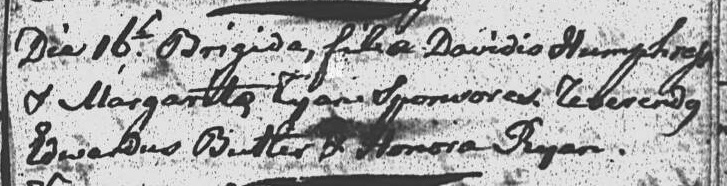 Die 16.ᵗ Brigida, filia Davidis Humphreys
& Margaritæ Ryan. Sponsores Reverendꝰ
Edwardus Butler & Honora Ryan.